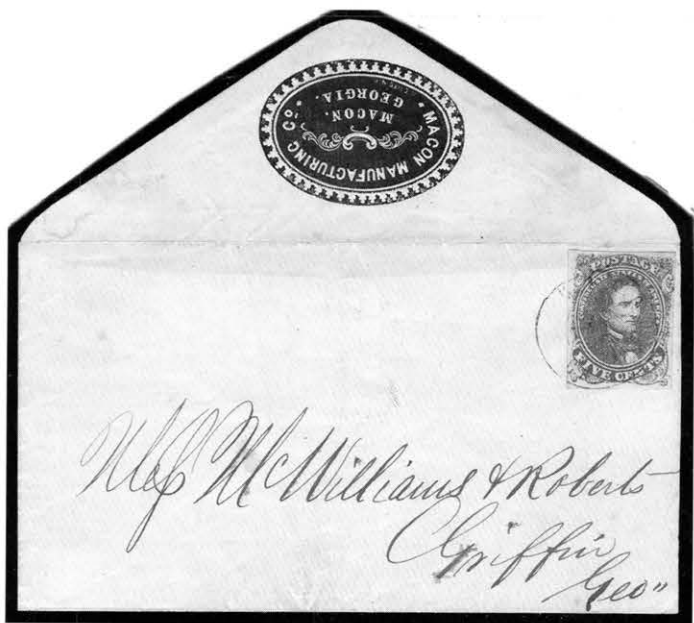 MACON MANUFACTURING CO.
MACON.
GEORGIA.
POSTAGE
FIVE CENTS
McWilliams & Roberts
Griffin
Geo"